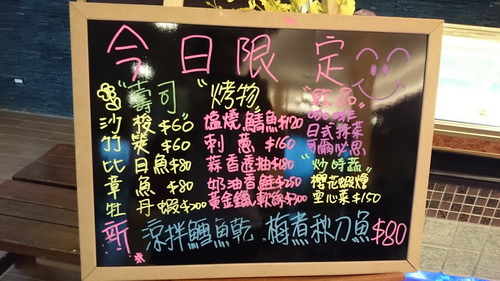 今日限定
"壽司" "烤物" "飲品"
沙梭$60 塩燒鯖魚$120
竹莢$60 刺蔥$160 日式抹茶
比目魚$80 蒜香透抽$180 可爾必思
章魚$80 奶油香鮭$250 "炒時蔬"
牡丹蝦$200 黃金鐵軟絲$300 櫻花蝦
空心菜$150
新 涼拌鱈魚乾、梅煮秋刀魚$80